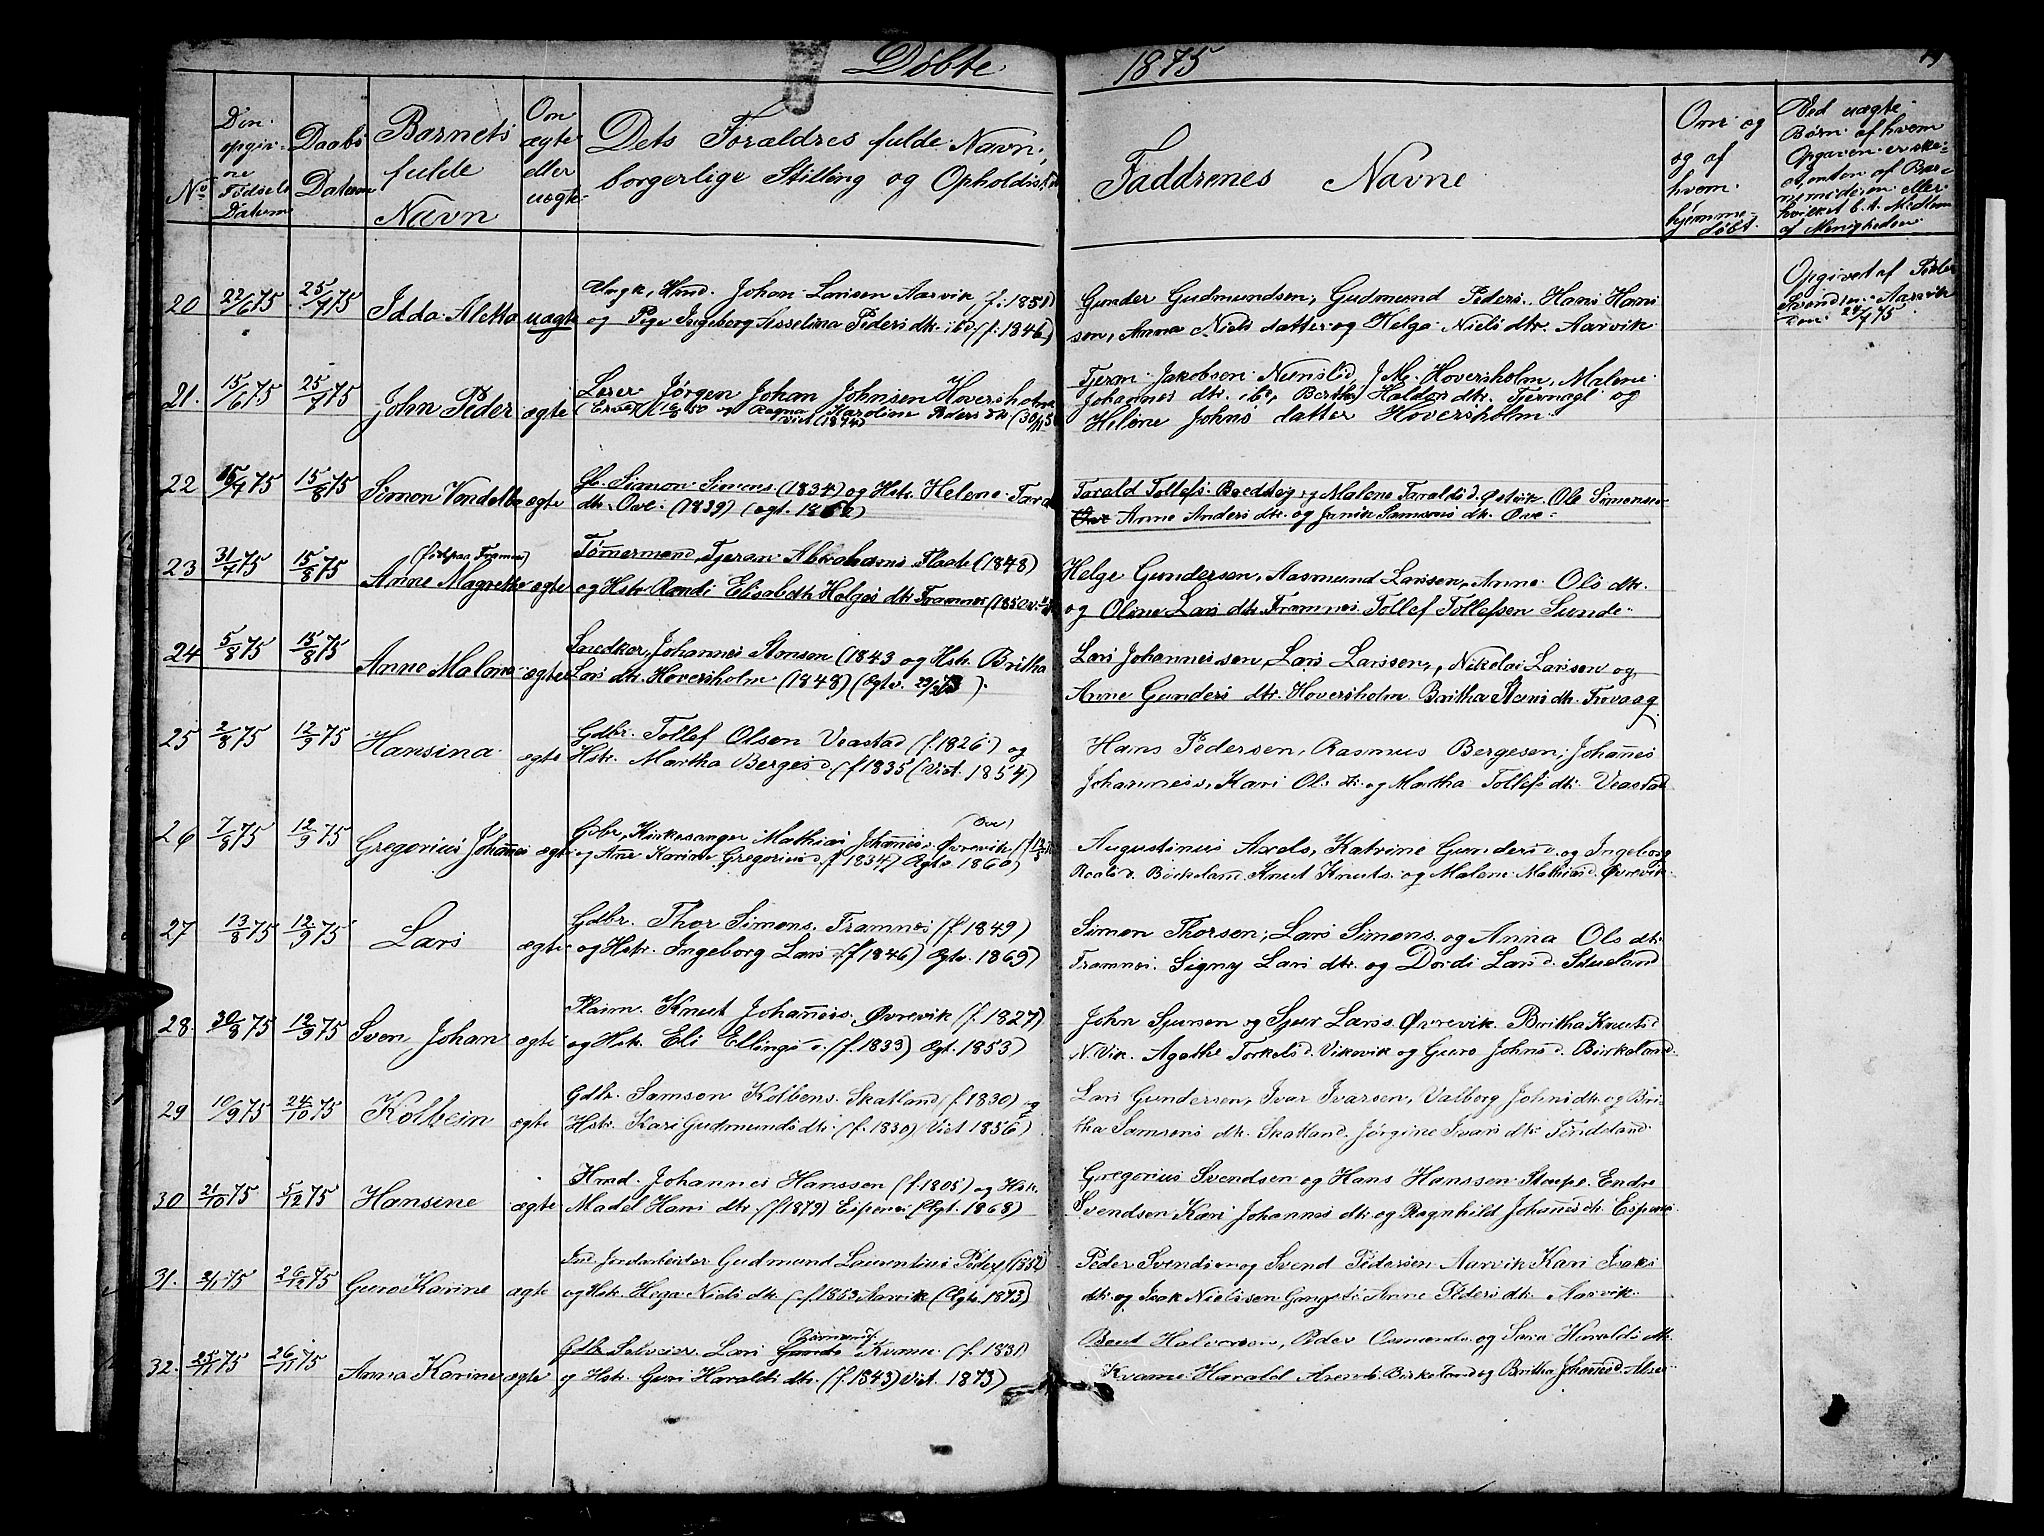 Döbte 1875
No
Den opgivne Fødsels Datum
Daabs Datum
Barnets fulde Navn
Om ægte eller uægte
Dets Forældres fulde Navn, borgerlige Stilling og Opholdsst
Faddrenes Navne
Om og og af hvem hjemmedöbt.
Ved uægte Børn af hvem Opgaven er skeet, enten af Barnemoderen eller hvilket b.t. Medlem af Menigheden
20 22/6 75 25/7 75 Idda Aletta uægte
Ungk, Hmd. Johan Larsen Aarvik (f. 1851)
og Pige Ingeborg Asseline Peders dtr. ibd (f. 1846)
Gunder Gudmundsen, Gudmund Peders. Hans Han
sen, Anna Niels datter og Helga Niels dtr. Aarvik
Opgivet af Peder Svendsen Aarvik den 24/7 75
21. 15/6 75 25/7 75 John Peder ægte
Lærer Jörgen Johan Johnsen Hoversholm
og Ragna Karoline Peders dtr. (30/11 5
viet (1874)
Jakobsen J. M. Hoversholm, Malene
Johannes dtr. ibd, Bertha Haldor dtr. Tjernagl og
Helene Johns datter Hoversholm
22 15/7 75 15/8 75 Simon Vendelbo ægte
Gb. Simon Simons (1834) og Hstr. Helene Tarald
dtr. Ove. (1839) (ægt. 1856)
Tarald Tollefs. Bredsteg og Malene Taralds d. Østvik. Ole Simonsen
Ove Anne Anders dtr. og Janik Samsons dtr. Ove
23 31/7 75 15/8 75 (född paa Framnes) Anne Magrethe ægte
Tömermand Tjeran Abrahams Flaate (1848)
og Hstr. Randi Elisabeth Helges dtr. Framnes (1850
Helge Gundersen, Aasmund Larssen, Anne Ols dtr.
og Oline Lars dtr. Framnes. Tollef Tollefsen Sunde
24 5/8 75 15/8 75 Anne Malene ægte
Snedker Johannes Stensen (1843 og Hstr. Britha
Lars dtr. Hoversholm (1848) (Ægtv. 73).
Lars Johannessen, Lars Larssen, Nikolai Larssen og
Anne Gunders dtr. Hoversholm Britha Stens dtr. Trovaag
25 2/8 75 12/9 75 Hansina ægte
Gdbr. Tollef Olsen Veastad (f. 1826) og
Hstr. Martha Berges d. (f 1835 (Viet. 1854)
Hans Pedersen, Rasmus Bergesen, Johañes
Johannes., Kari Ols dtr. og Martha Tollefs dtr. Veastad
26 7/8 75 12/9 75 Gregorius Johañes ægte
(Ove)
Gdbr. Kirkesanger Mathias Johañes. Øvrevik (f
og Ane Karine Gregorius d. (f 1834) Ægtv 1860)
Augustinus Axels, Katrine Gunders d. og Ingeborg
Roalds d. Birkeland. Knut Knuts. og Malene Mathias d. Øvrevik
27 13/8 75 12/9 75 Lars ægte
Gdbr. Thor Simons. Framnes (f. 1849)
og Hstr. Ingeborg Lars d. (f 1846) Ægtv. 1869)
Simon Thorsen, Lars Simons. og Anna Ols dtr.
Framnes. Signy Lars dtr. og Dordi Lars d. Stueland
28. 30/8 75 12/9 75 Sven Johan ægte
Plasm. Knut Johañes. Øvrevik (f. 1827)
og Hstr. Eli Ellings d. (f. 1833) Ægt. 1853)
John Sjursen og Sjur Larss. Øvrevik. Britha Knuts d
N. Vik. Agathe Torkels d. Vikevik og Guro Johns d. Birkeland
29 10/9 75 24/10 75 Kolbein ægte
Gdbr. Samson Kolbens. Skatland (f. 1830) og
Hstr. Kari Gudmunds dtr. (f. 1830) Viet 1856)
Lars Gundersen, Ivar Ivarsen, Valborg Johns dtr. og Bri-
tha Samsons dtr. Skatland. Jörgine Ivars dtr. Tendeland
30 21/10 75 5/12 75 Hansine ægte
Hmd. Johannes Hanssen (f. 1805) og Hstr.
Madel Hans dtr. Espenes (Ægt. 1868)
Gregorius Svendsen og Hans Hanssen Stöpe. Endre
Svendsen Kari Johannes dtr. og Ragnhild Johañes dtr. Espenes
31. 2/11 75 26/12 75 Guro Karine ægte
Ind. Jordarbeider Gudmund Laurentius Peders (1852)
og Hstr. Hega Niels dtr. (f. 1853 Aarvik (Ægtv. 1873)
Peder Svendsen og Svend Pedersen Aarvik Kari Isaks
dtr. og Isak Nielssen Gangstö Anne Peders dtr. Aarvik
32. 25/11 75 26/11 75 Anna Karine ægte
Gdbr. Selveier. Lars Kvame. (f. 1831)
og Hstr. Guri Haralds dtr. (f 1843) Viet. 1873)
Bent Halvorsen, Peder Osmunds. og Sara Haralds dtr.
Kvame Harald Arents. Birkeland og Britha Johañes d.